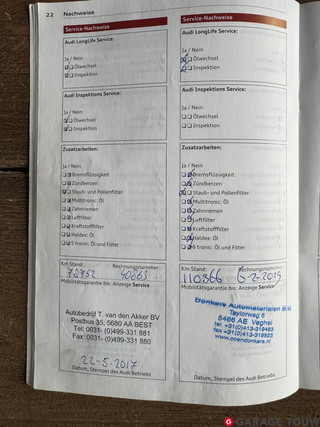 22 Nachweise
Service-Nachweise
Audi LongLife Service:
Ja / Nein
Ölwechsel
Inspektion
Audi Inspektions Service:
Ja / Nein
Ölwechsel
Inspektion
Zusatzarbeiten:
Ja / Nein
Bremsflüssigkeit
Zündkerzen
Staub- und Pollenfilter
Multitronic: Öl
Zahnriemen
Luftfilter
Kraftstofffilter
Haldex: Öl
S tronic: Öl und Filter
Km Stand: Rechnungsnummer:
40065
Mobilitätsgarantie bis: Anzeige Service
Autobedrijf T. van den Akker BV
Postbus 35, 5680 AA BEST
Tel: 0031- (0)499-331 881
Fax: 0031- (0)499-330 880
22-5-2017
Datum, Stempel des Audi Betriebs
Service-Nachweise
Audi LongLife Service:
Ja / Nein
Ölwechsel
Inspektion
Audi Inspektions Service:
Ja / Nein
Ölwechsel
Inspektion
Zusatzarbeiten:
Ja / Nein
Bremsflüssigkeit
Zündkerzen
Staub- und Pollenfilter
Multitronic: Öl
Zahnriemen
Luftfilter
Kraftstofffilter
Haldex: Öl
S tronic: Öl und Filter
Km Stand: Rechnungsnummer:
110866 6-2-2019
Mobilitätsgarantie bis: Anzeige Service
Donkers Automaterialen B.V.
Taylorweg 6
5466 AE Veghel
Datum, Stempel des Audi Betriebs
GARAGE TOUW